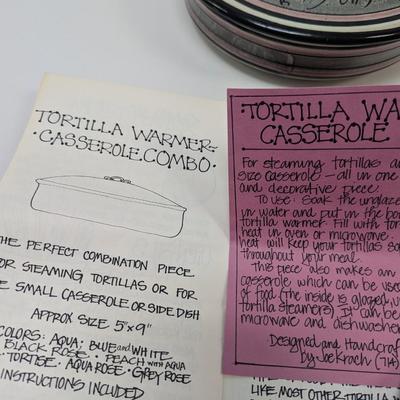 TORTILLA WARMER-
·CASSEROLE COMBO·
THE PERFECT COMBINATION PIECE
FOR STEAMING TORTILLAS OR FOR
SMALL CASSEROLE OR SIDE DISH
APPROX SIZE 5"x9"
COLORS: AQUA; BLUE and WHITE
BLACK ROSE · PEACH WITH AQUA
·TORTISE· AQUA ROSE · GREY ROSE
INSTRUCTIONS INCLUDED
·TORTILLA WA
CASSEROLE
For steaming tortillas a
size casserole - all in one
and decorative piece.
To use: Soak the unglaze
in water and put in the bo
tortilla warmer. Fill with to
heat in oven or microwave.
heat will keep your tortillas so
throughout your meal.
This piece also makes an
casserole which can be use
of food (the inside is glazed, u
tortilla steamers). It can be
microwave and dishwasher
Designed and Handcraf
by Joe Krach (714)
LIKE MOST OTHER TORTILLA W